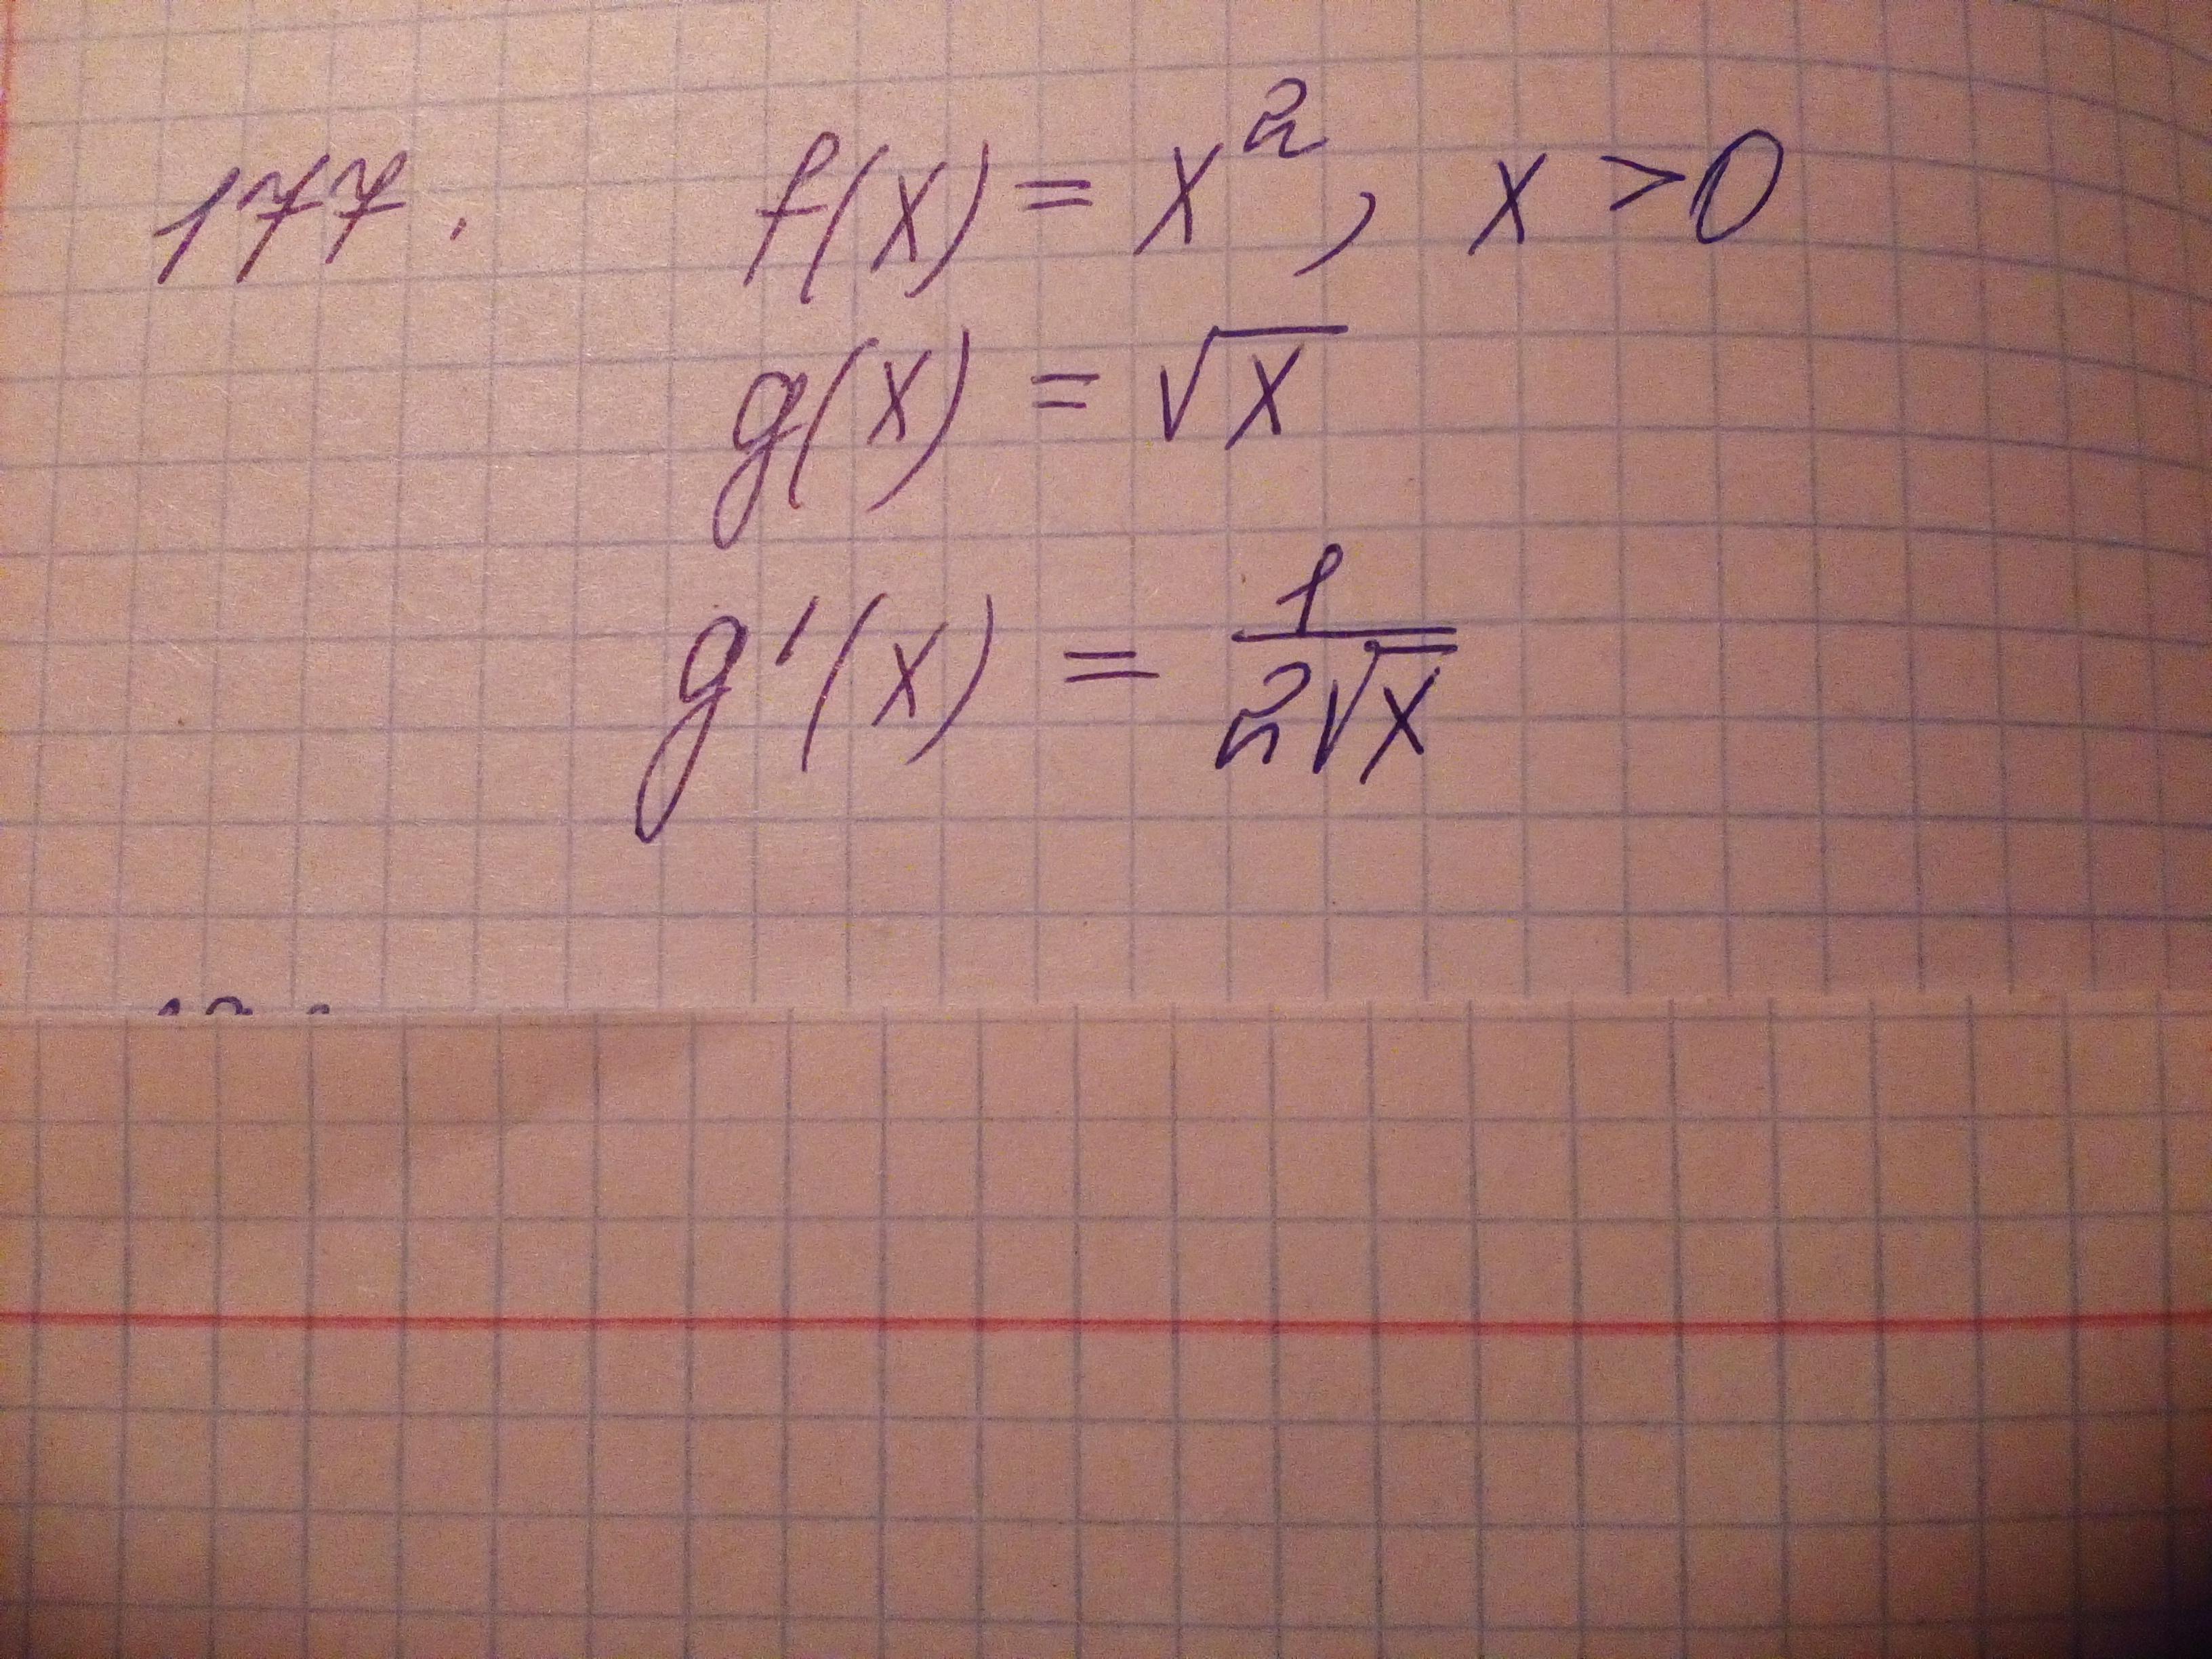 177. f(x) = x², x > 0
g(x) = √x
g'(x) = 1/(2√x)